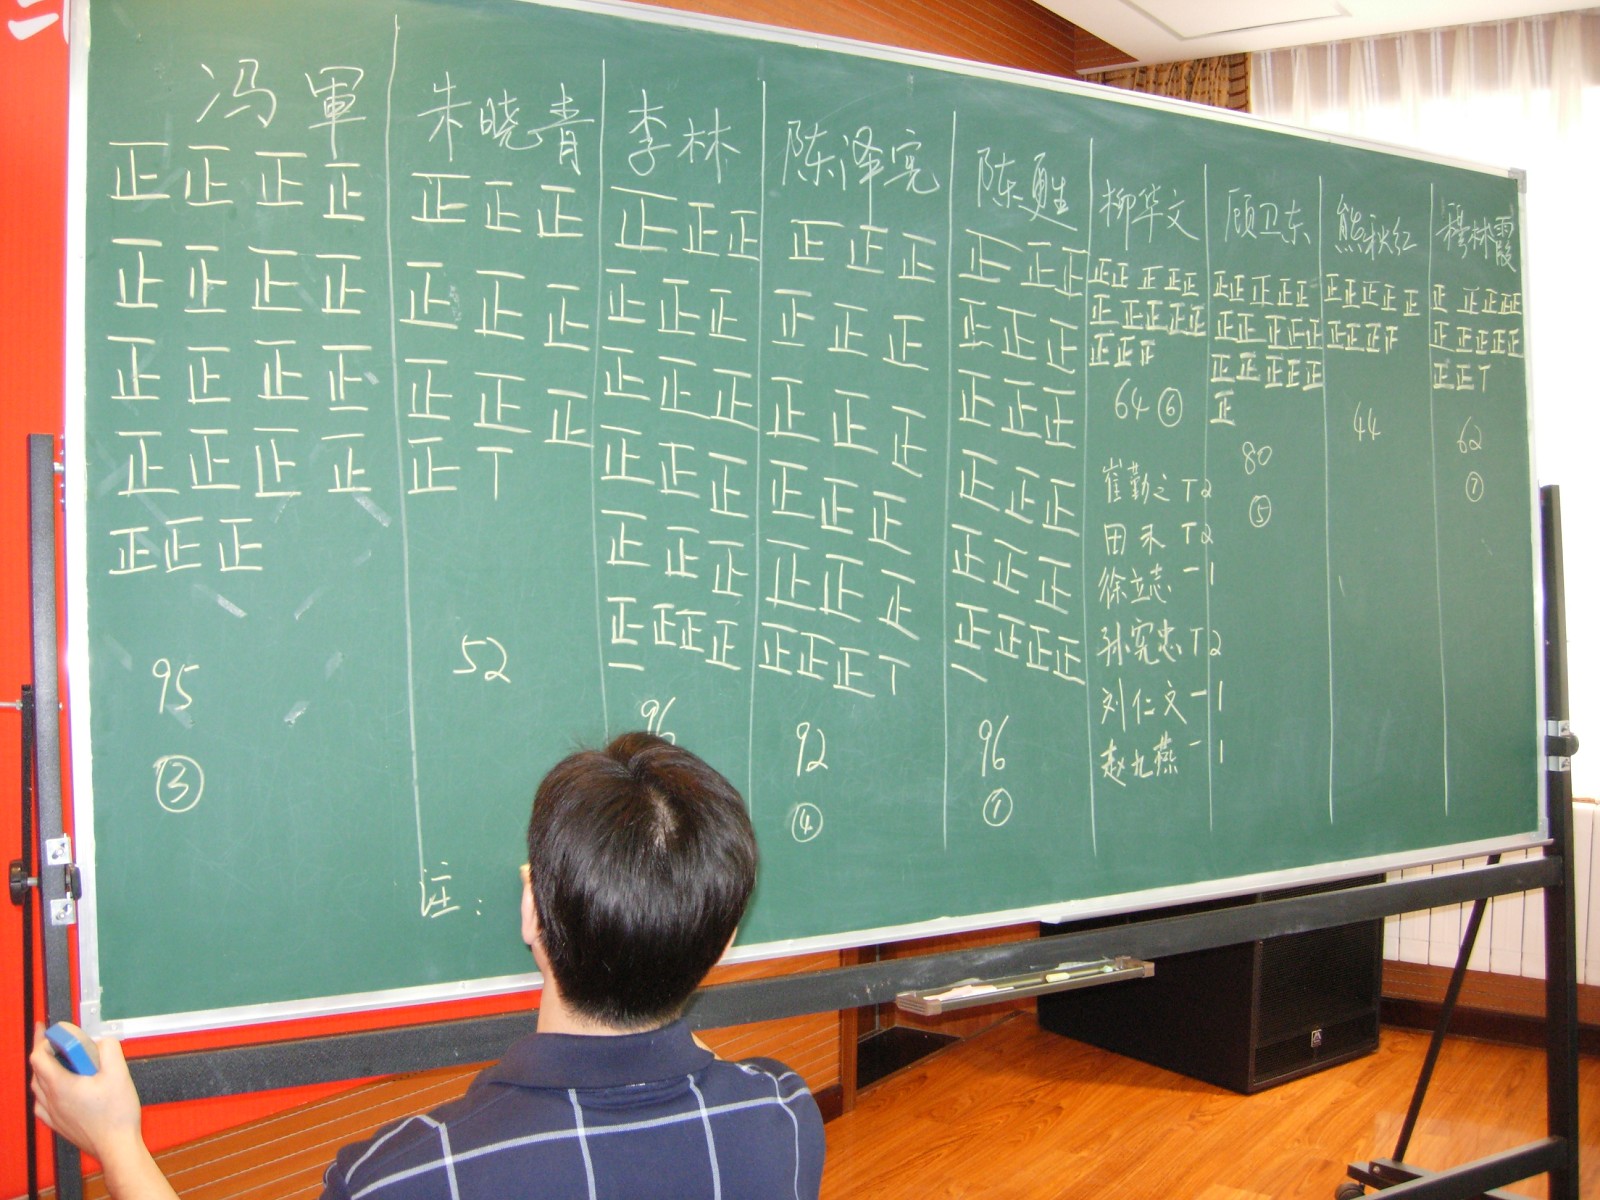 冯軍
正正正正
正正正正
正正正正
正正正正
正正正
95
③
朱晓青
正正正
正正正
正正正
正T
52
注：
李林
正正正
正正正
正正正
正正正
正正正
正正正正
一
96
陈泽宪
正正正
正正正
正正正
正正正
正正正
正正正T
92
④
陈甦
正正正
正正正
正正正
正正正
正正正
正正正正
一
96
①
柳华文
正正正正正
正正正正正
正正正
64 ⑥
崔勤之 T 2
田禾 T 2
徐立志 一 1
孙宪忠 T 2
刘仁文 一 1
赵九燕 一 1
顾卫东
正正正正正
正正正正正
正正正正正
正
80
⑤
熊秋红
正正正正正
正正正正
44
穆林霞
正正正正正
正正正正正
正正T
62
⑦